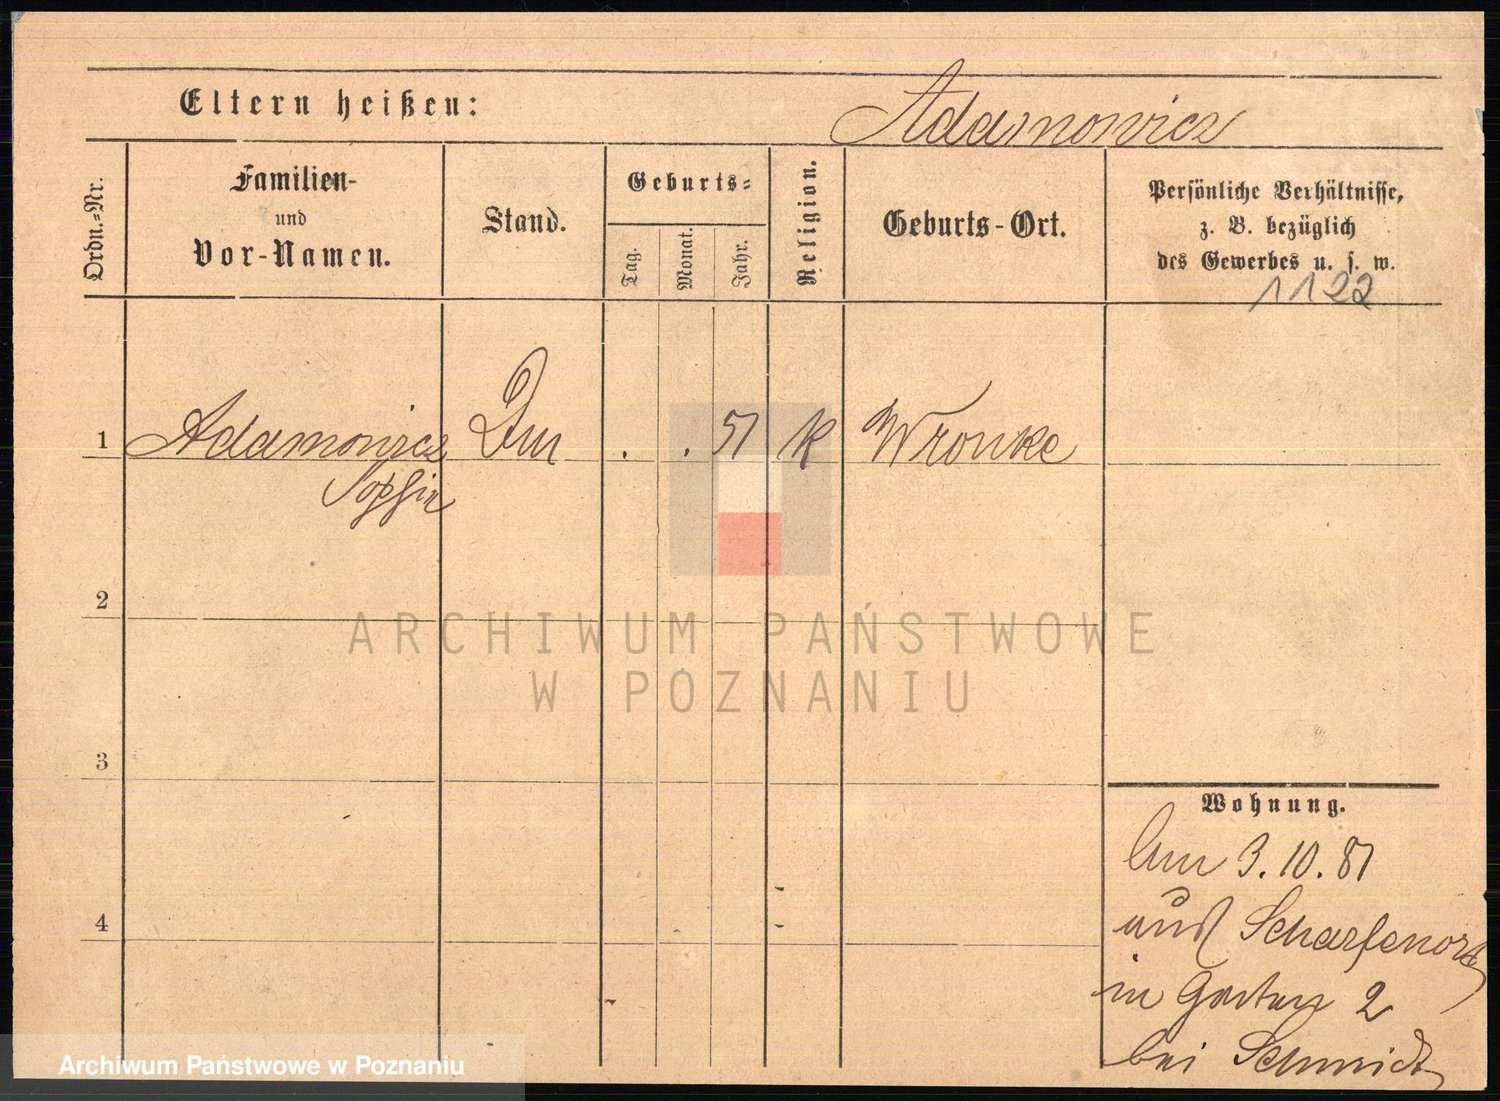 Eltern heißen: Adamowicz
Ordn.-Nr.
Familien-
und
Vor-Namen.
Stand.
Geburts-
Tag.
Monat.
Jahr.
Religion.
Geburts-Ort.
Persönliche Verhältnisse,
z. B. bezüglich
des Gewerbes u. s. w.
1122
1 Adamowicz . . 51 k Wronke
Sophie
2
ARCHIWUM PAŃSTWOWE
W POZNANIU
3
Wohnung.
4
3.10.81
aus Scharfenort
in Garten 2
bei Schmidt
Archiwum Państwowe w Poznaniu